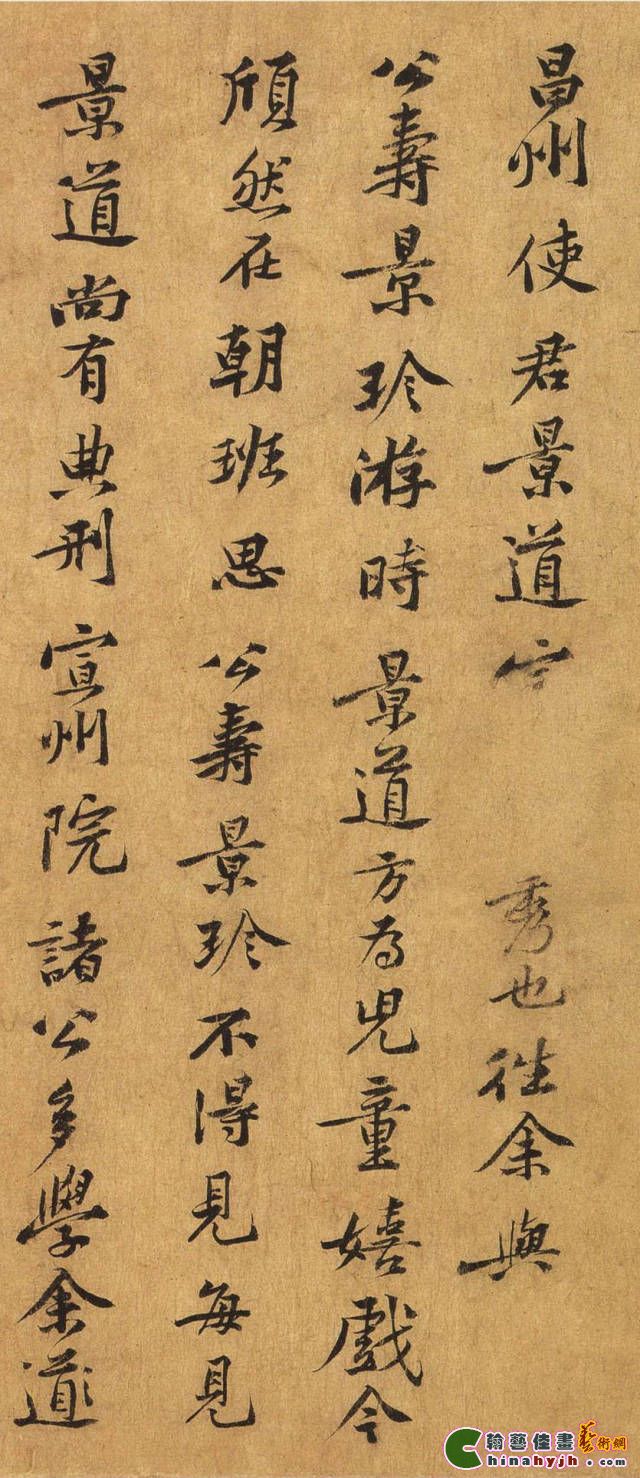 昌州使君景道 秀也往余與
公壽景珍游時景道方為兒童嬉戲今
頎然在朝班思公壽景珍不得見每見
景道尚有典刑宣州院諸公多學余道
翰藝佳畫藝術網
Chinahyjh.com